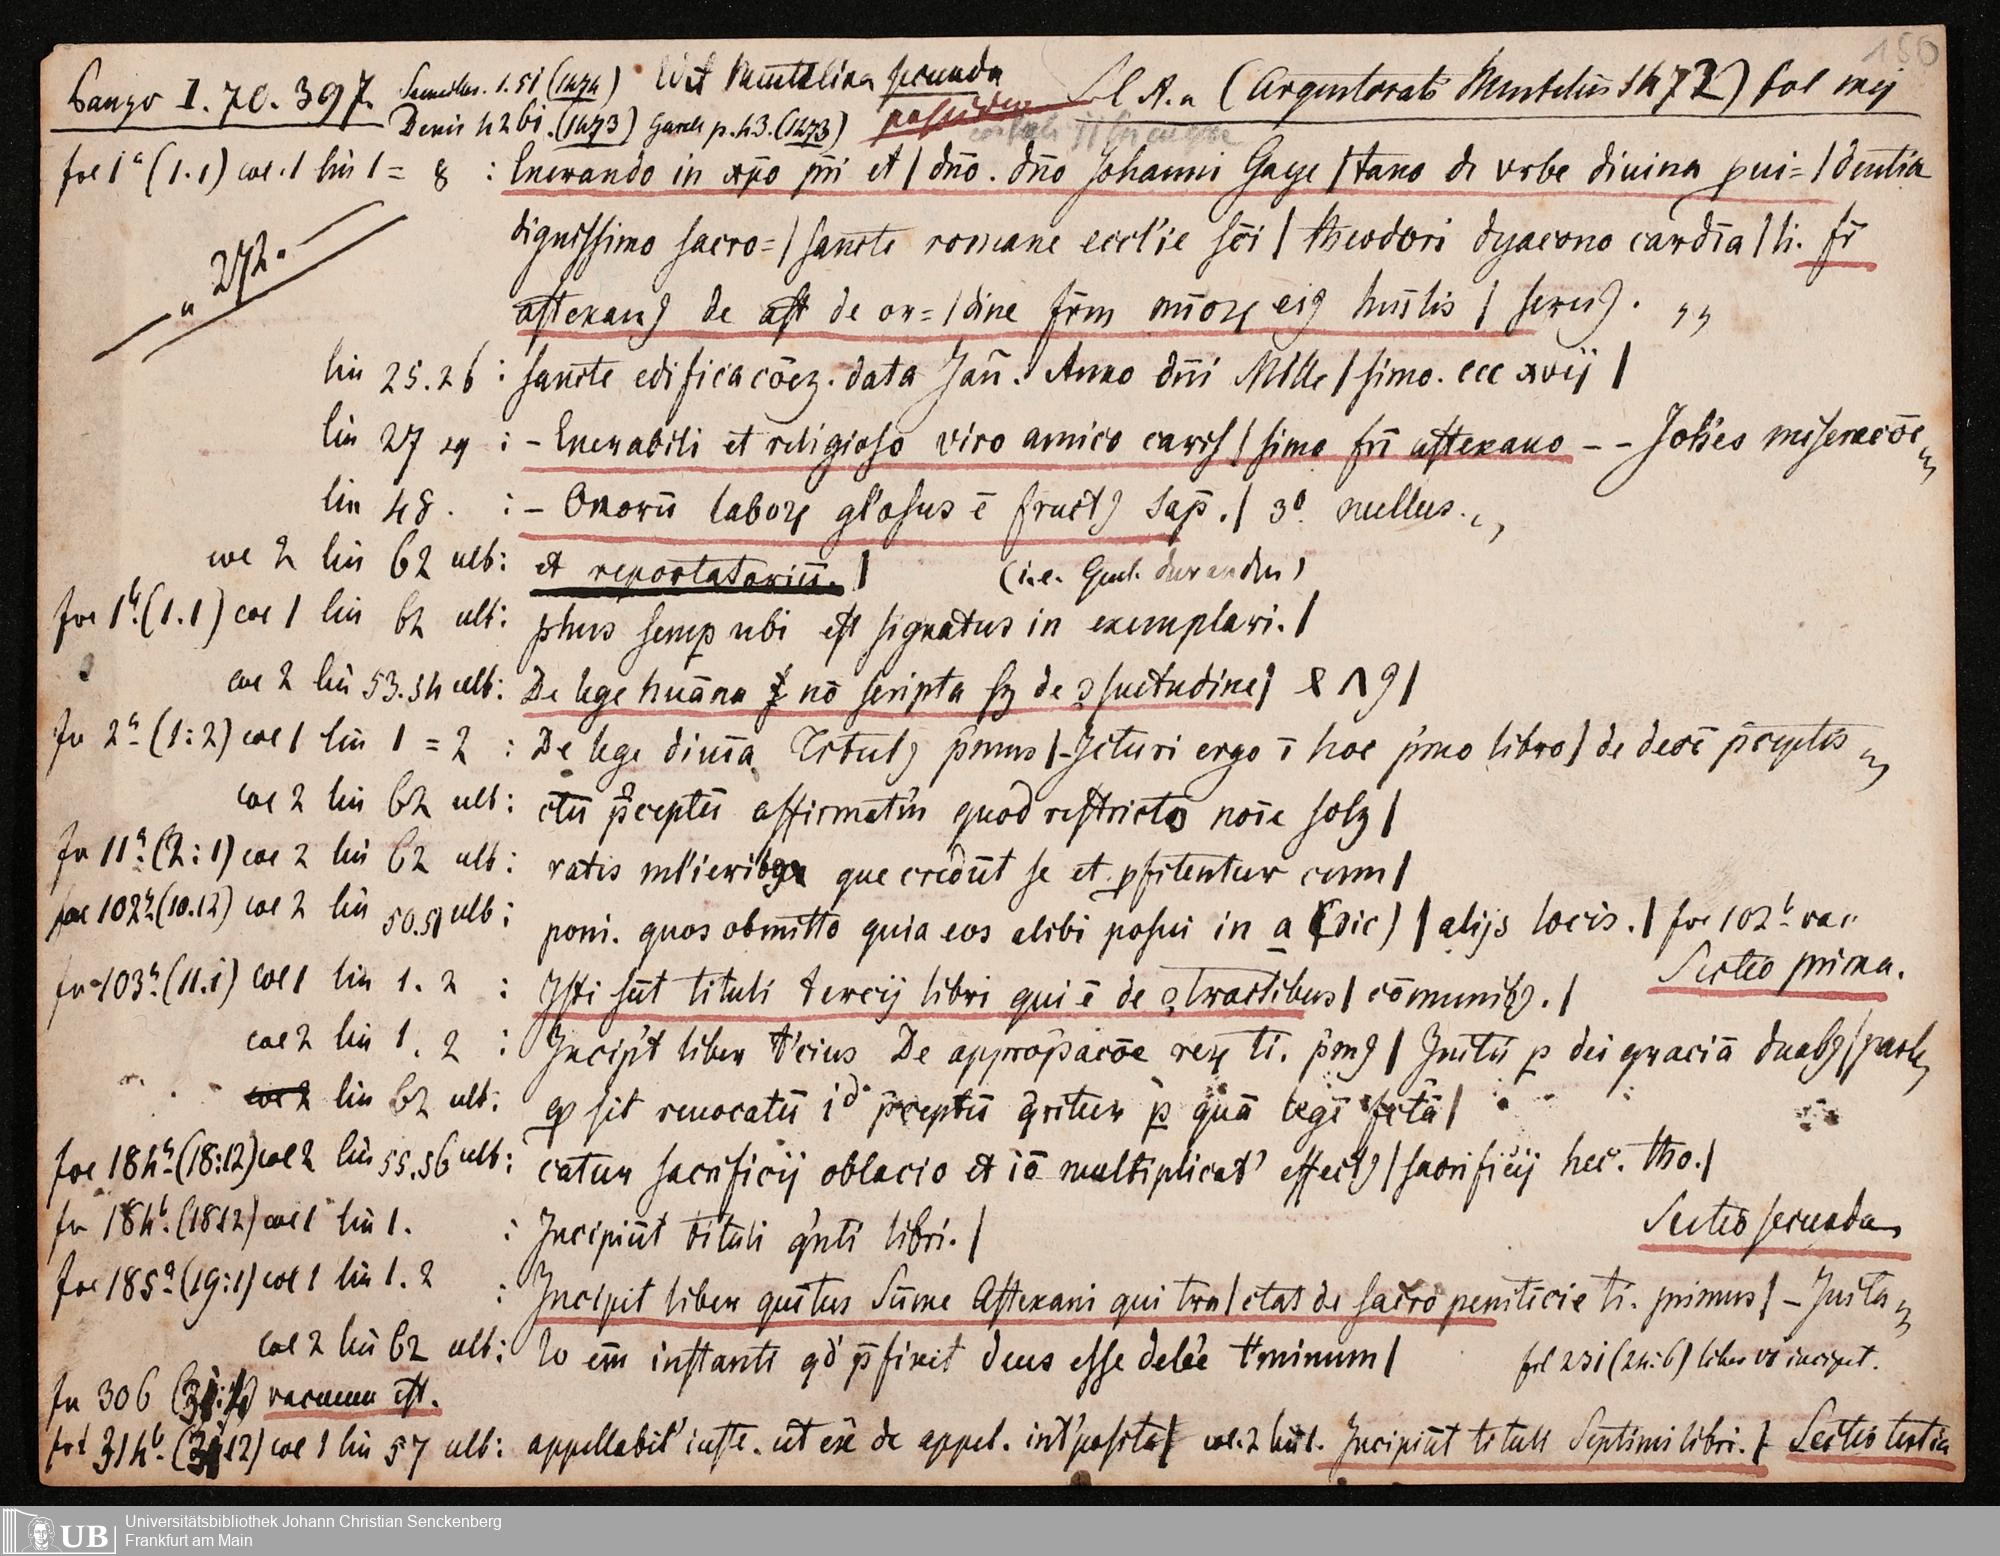 150
Panzer I. 70. 397. Semler. 1.51 (1474) Edit Mentelina secunda S.l. A.n (Argentorati Mentelius 1472) fol maj
Denis 426i. (1473) p. 43. (1473)
fol 1a (1.1) col. 1 lin 1 = 8 : Enerando in xpo pri et | dno. dno Johanni Gaye | tano de vrbe diuina pui= | dentia
dignissimo sacro= | sancte romane eccl'ie sci | theodori dyacono cardia | li. fr
"272."
astexan9 de ast de or= | dine frm mioꝝ ei9 huilis | seru9. ,,
lin 25.26 : sancte edificacoez. data Jan. Anno dni Mille | simo. ccc xvij |
lin 27 sq : – Enerabili et religioso viro amico cariss | simo fri astexano – – Joh'es miseracoe
lin 48. : – Onorū laboꝝ gl'osus ē fruct9 Sap. | 3o. nullus.
col 2 lin 62 ult: et reportatoriū. | (i.e. Guil. durandus)
fol 1b. (1.1) col 1 lin 62 ult: phus semp ubi est signatus in exemplari. |
col 2 lin 53.54 ult: De lege huāna & nō scripta sz de ꝯsuetudine |
fol 2a (1:2) col 1 lin 1 = 2 : De lege diuīa Titul9 p'mus | – Icturi ergo ī hoc p'mo libro | de decē p̄ceptis
col 2 lin 62 ult: ctū p̄ceptū affirmatiū quod restricto noīe solz |
fol 11a. (2:1) col 2 lin 62 ult: ratis ml'ierib9 que credūt se et ꝓfitentur cum |
fol 102a. (10.12) col 2 lin 50.51 ult: poni. quos obmitto quia eos alibi posui in a (sic) | alijs locis. | fol 102b. vac
fol 103a. (11.1) col 1 lin 1. 2 : Isti sūt tituli tercij libri qui ē de ꝯtractibus | cōmunib9. | Sectio prima.
col 2 lin 1. 2 : Incip't liber t'cius De appropacōe reꝝ ti. p'm9 | Inītū ꝑ dei graciā duab9 | partib
col 2 lin 62 ult: ꝙ sit reuocatū id p̄ceptū q̄ritur ꝑ quā legē fctā |
fol 184a. (18:12) col 2 lin 55.56 ult: catur sacrificij oblacio et iō multiplicat' effect9 | sacrificij hec. tho. |
fol 184b. (18.12) col 1 lin 1. : Incipiūt tituli q'nti libri. | Sectio secunda
fol 185a. (19:1) col 1 lin 1. 2 : Incipit liber quītus Sūme Astexani qui tra | ctat de sacro penitēcie ti. primus | – Iuxta
col 2 lin 62 ult: lo em instanti qd' p̄fixit deus esse debe't t'minum | fol 231 (24:6) liber VI incipit.
fol 306 vacuum est.
fol 314b. col 1 lin 57 ult: appellabil' iuste. ut exē de appel. int'posita | col. 2 lin 1. Incipiūt tituli Septimi libri. | Sectio tertia
UB
Universitätsbibliothek Johann Christian Senckenberg
Frankfurt am Main